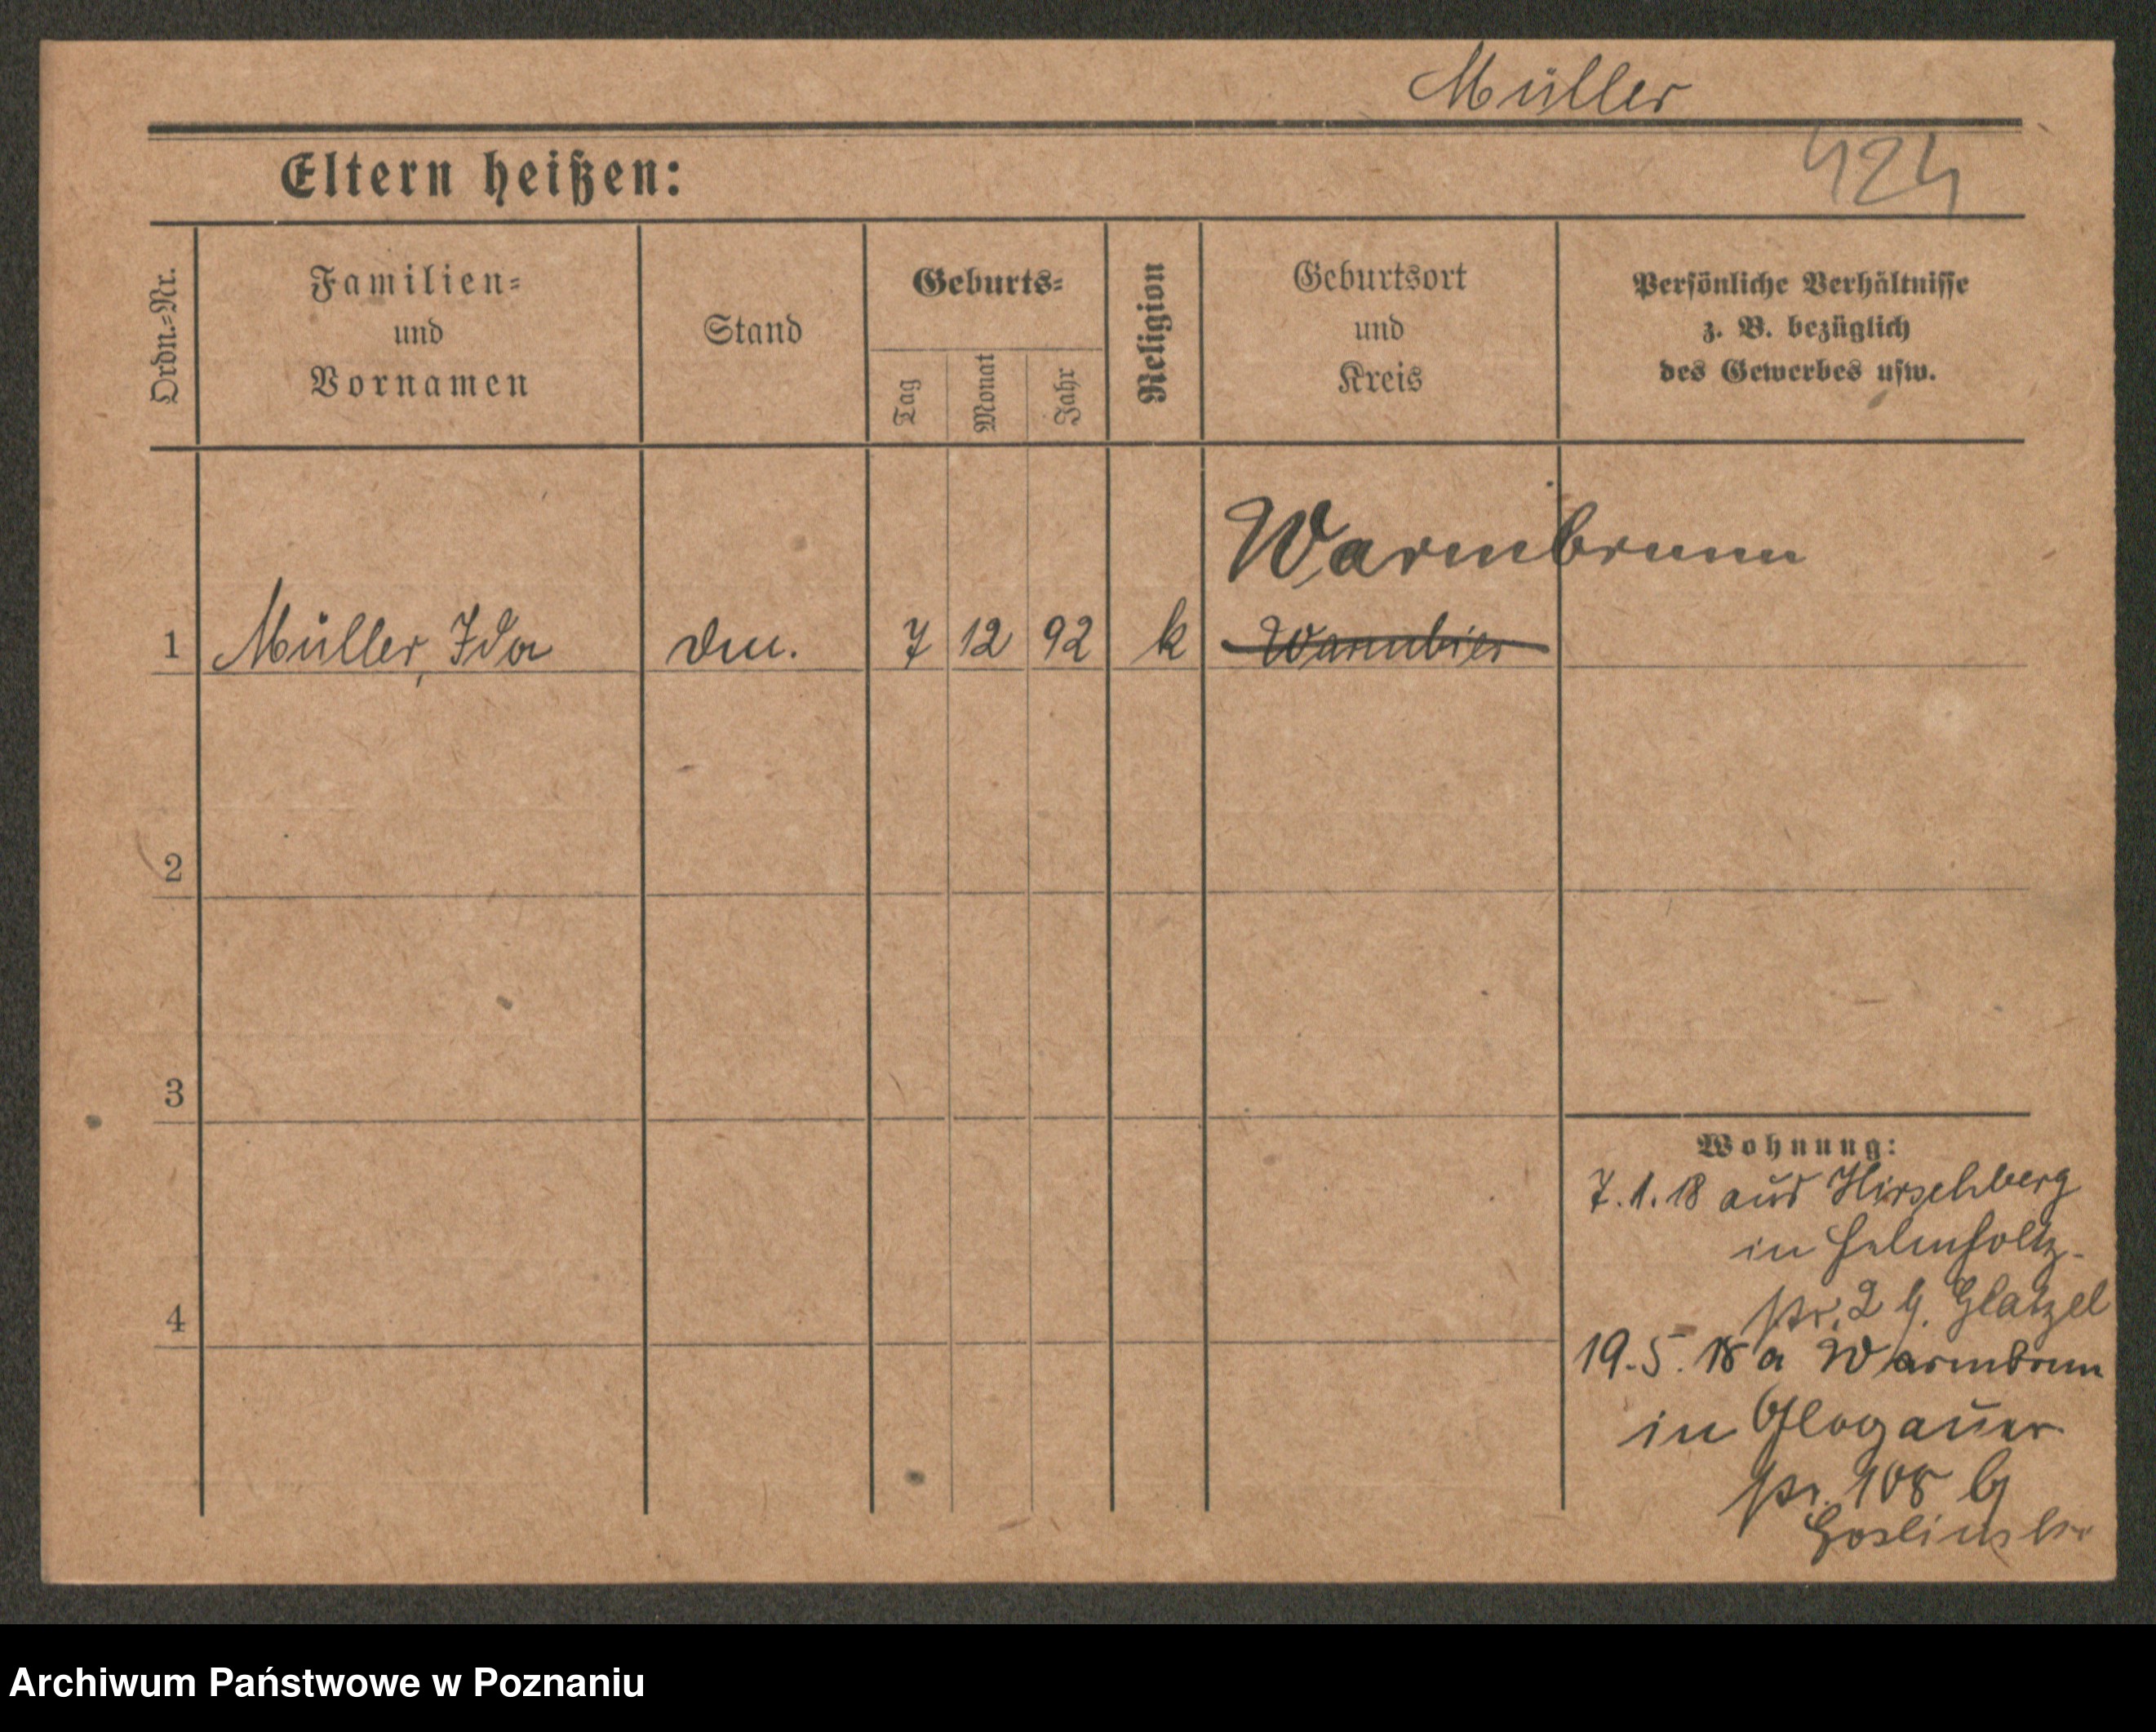 Müller
424
Eltern heißen:
Ordn.-Nr.
Familien-
und
Vornamen
Stand
Geburts-
Tag
Monat
Jahr
Religion
Geburtsort
und
Kreis
Persönliche Verhältnisse
z. B. bezüglich
des Gewerbes usw.
Warmbrunn
1 Müller, Ida 7 12 92 k Warmbier
2
3
4
Wohnung:
7.1.18 aus Hirschberg
in Helmholtz-
str. 2 b. Glatzel
19.5.18 a Warmbrunn
in Glogauer
str. 108 b
Goslinski
Archiwum Państwowe w Poznaniu